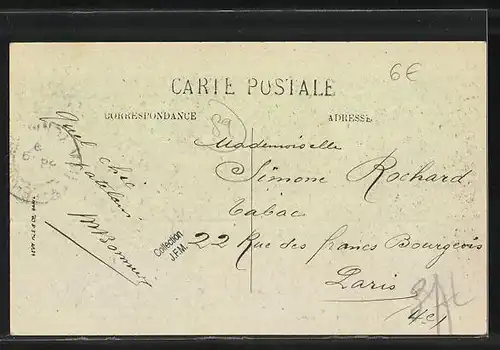 6€
CARTE POSTALE
CORRESPONDANCE
ADRESSE
89
Quel chic
Mademoiselle
Simone Rochard
Tabac
22 Rue des francs Bourgeois
Paris
4e
Collection
J.F.M.